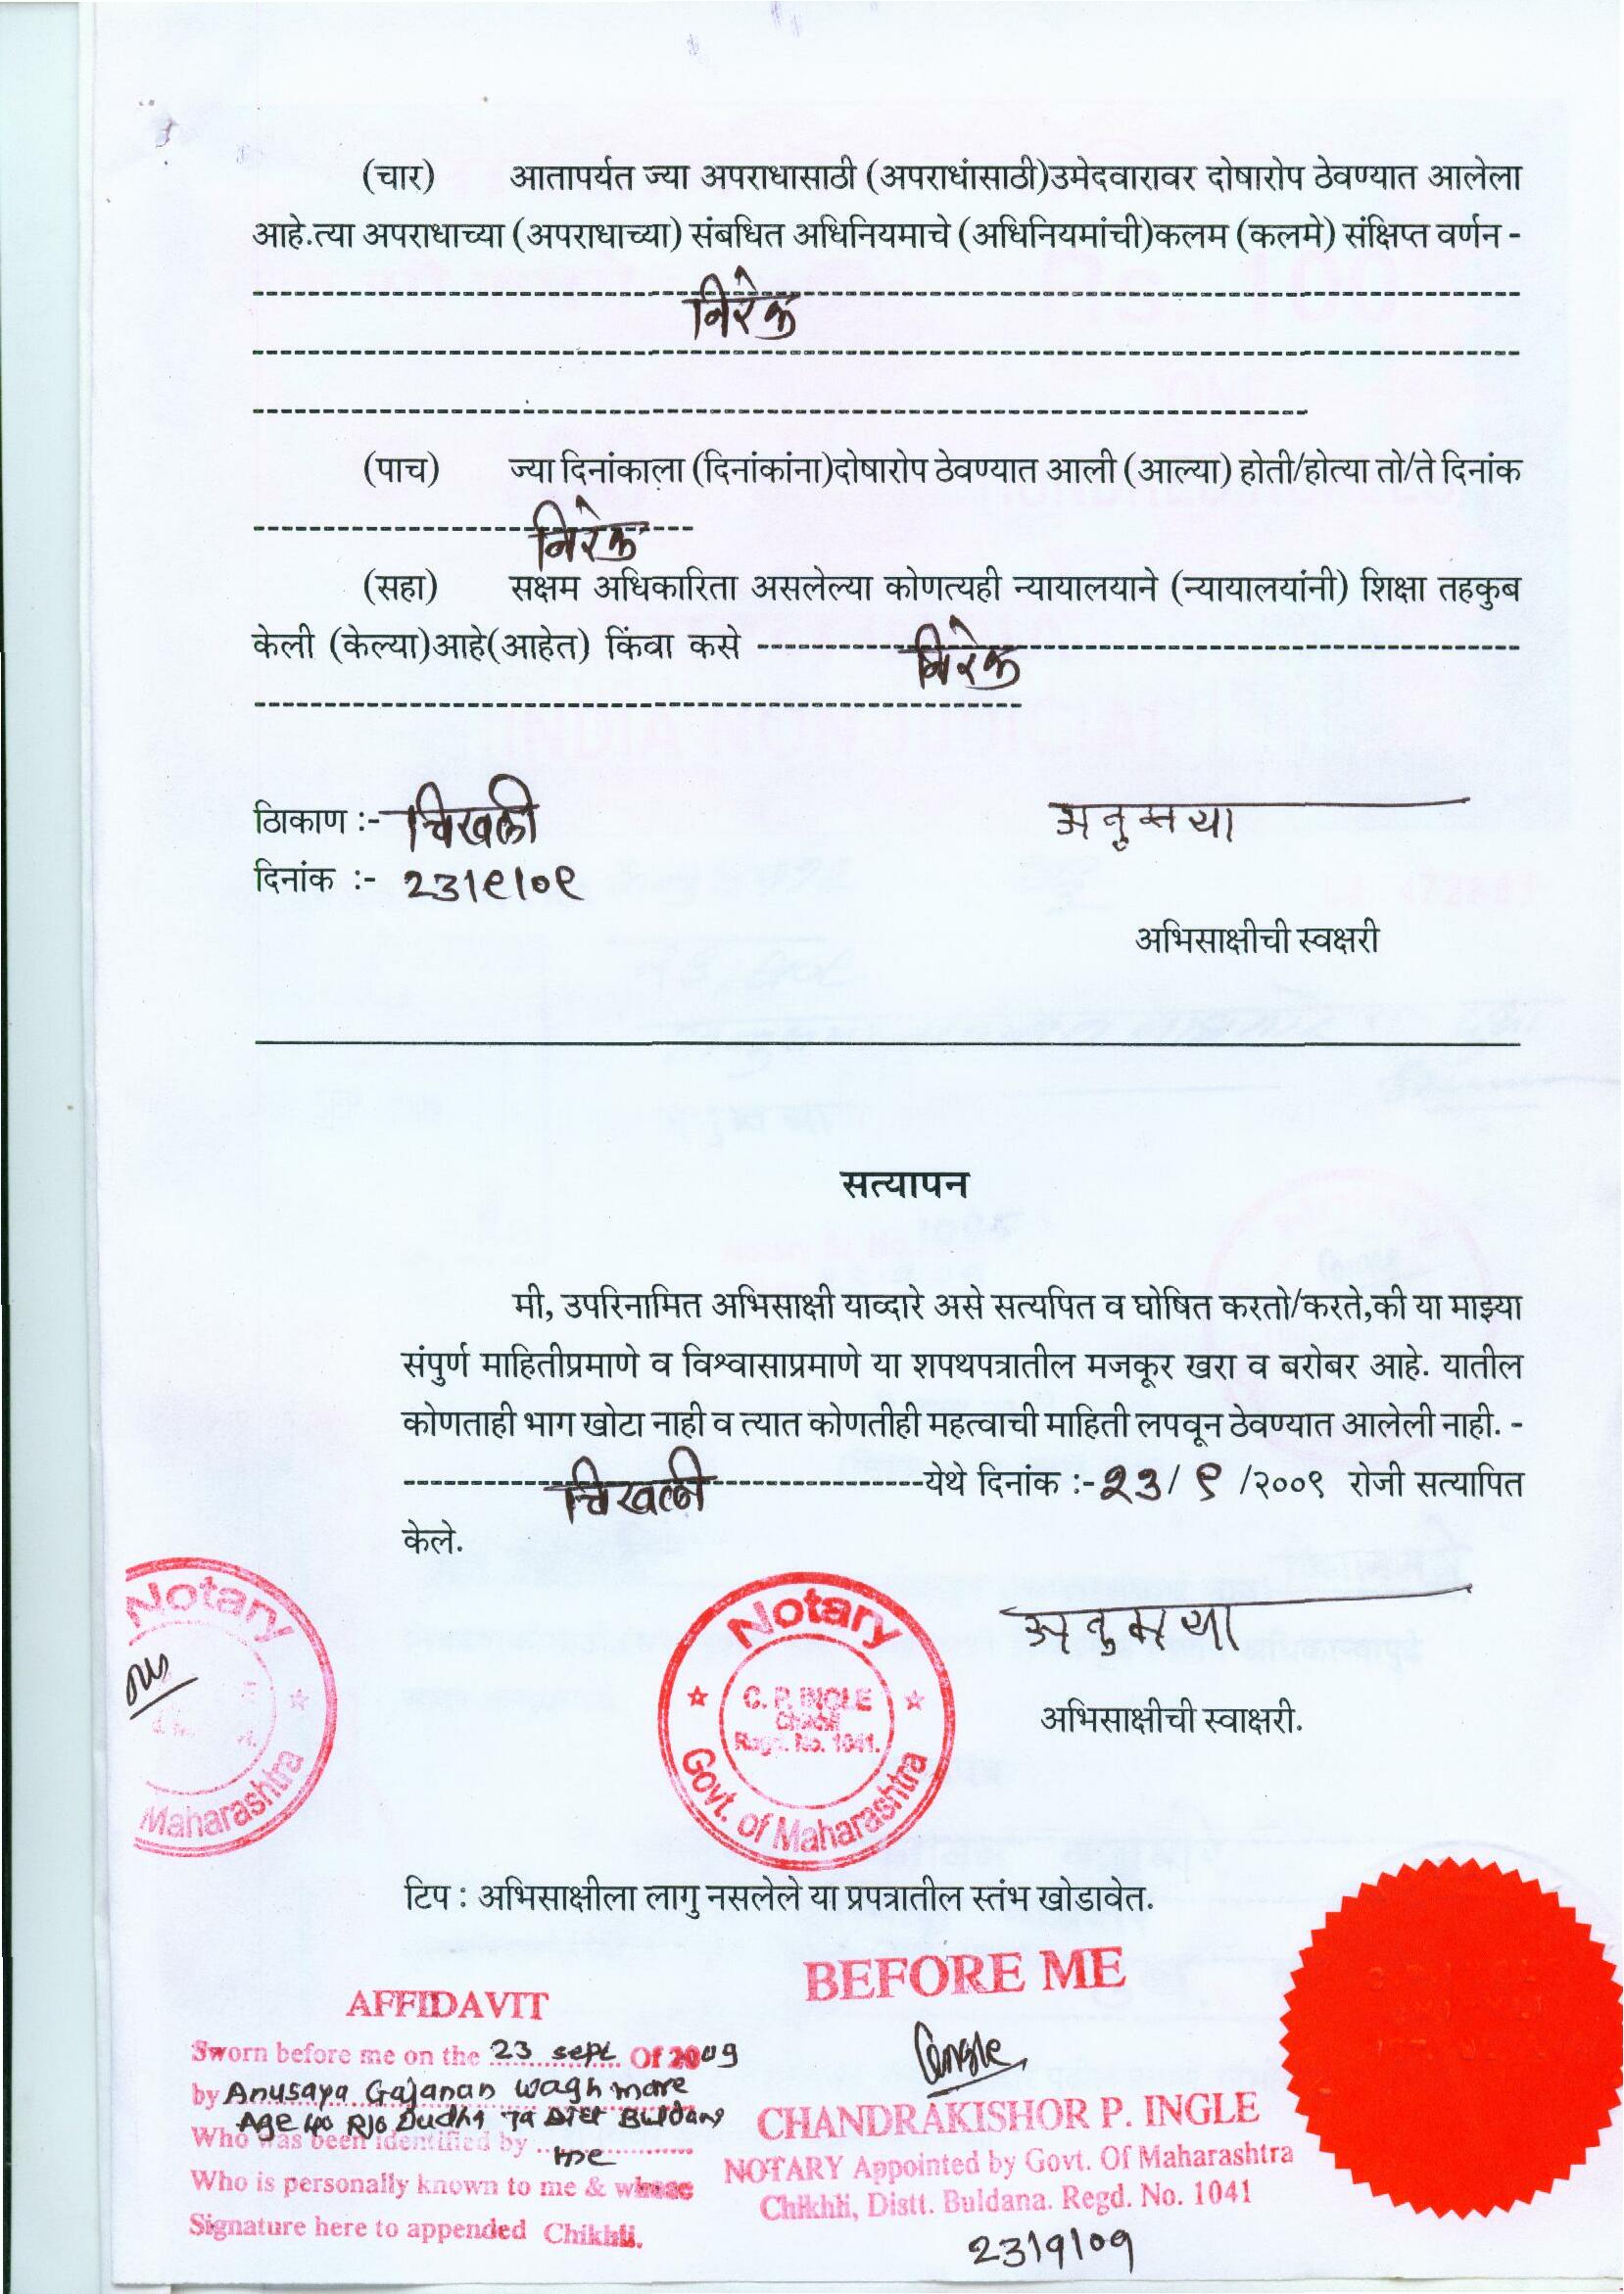 (चार) आतापर्यत ज्या अपराधासाठी (अपराधांसाठी)उमेदवारावर दोषारोप ठेवण्यात आलेला
आहे.त्या अपराधाच्या (अपराधाच्या) संबधित अधिनियमाचे (अधिनियमांची)कलम (कलमे) संक्षिप्त वर्णन -
निरंक
(पाच) ज्या दिनांकाला (दिनांकांना)दोषारोप ठेवण्यात आली (आल्या) होती/होत्या तो/ते दिनांक
निरंक
(सहा) सक्षम अधिकारिता असलेल्या कोणत्यही न्यायालयाने (न्यायालयांनी) शिक्षा तहकुब
केली (केल्या)आहे(आहेत) किंवा कसे निरंक
ठिाकाण :- चिखली
दिनांक :- 23/९/०९
अनुसया
अभिसाक्षीची स्वक्षरी
सत्यापन
मी, उपरिनामित अभिसाक्षी याव्दारे असे सत्यपित व घोषित करतो/करते,की या माझ्या
संपुर्ण माहितीप्रमाणे व विश्वासाप्रमाणे या शपथपत्रातील मजकूर खरा व बरोबर आहे. यातील
कोणताही भाग खोटा नाही व त्यात कोणतीही महत्वाची माहिती लपवून ठेवण्यात आलेली नाही. -
चिखली येथे दिनांक :- २३/ ९ /२००९ रोजी सत्यापित
केले.
अनुसया
अभिसाक्षीची स्वाक्षरी.
Notary
Maharashtra
Notary
C. P. INGLE
Chikhli
Regd. No. 1041.
Govt. of Maharashtra
टिप : अभिसाक्षीला लागु नसलेले या प्रपत्रातील स्तंभ खोडावेत.
BEFORE ME
AFFIDAVIT
Sworn before me on the 23 sept Of 2009
by Anusaya Gajanan waghmare
Age 40 R/o Dudha Ta Dist Buldana
Who was been identified by me
Who is personally known to me & whose
Signature here to appended Chikhli.
Cingle
CHANDRAKISHOR P. INGLE
NOTARY Appointed by Govt. Of Maharashtra
Chikhli, Distt. Buldana. Regd. No. 1041
23/9/09